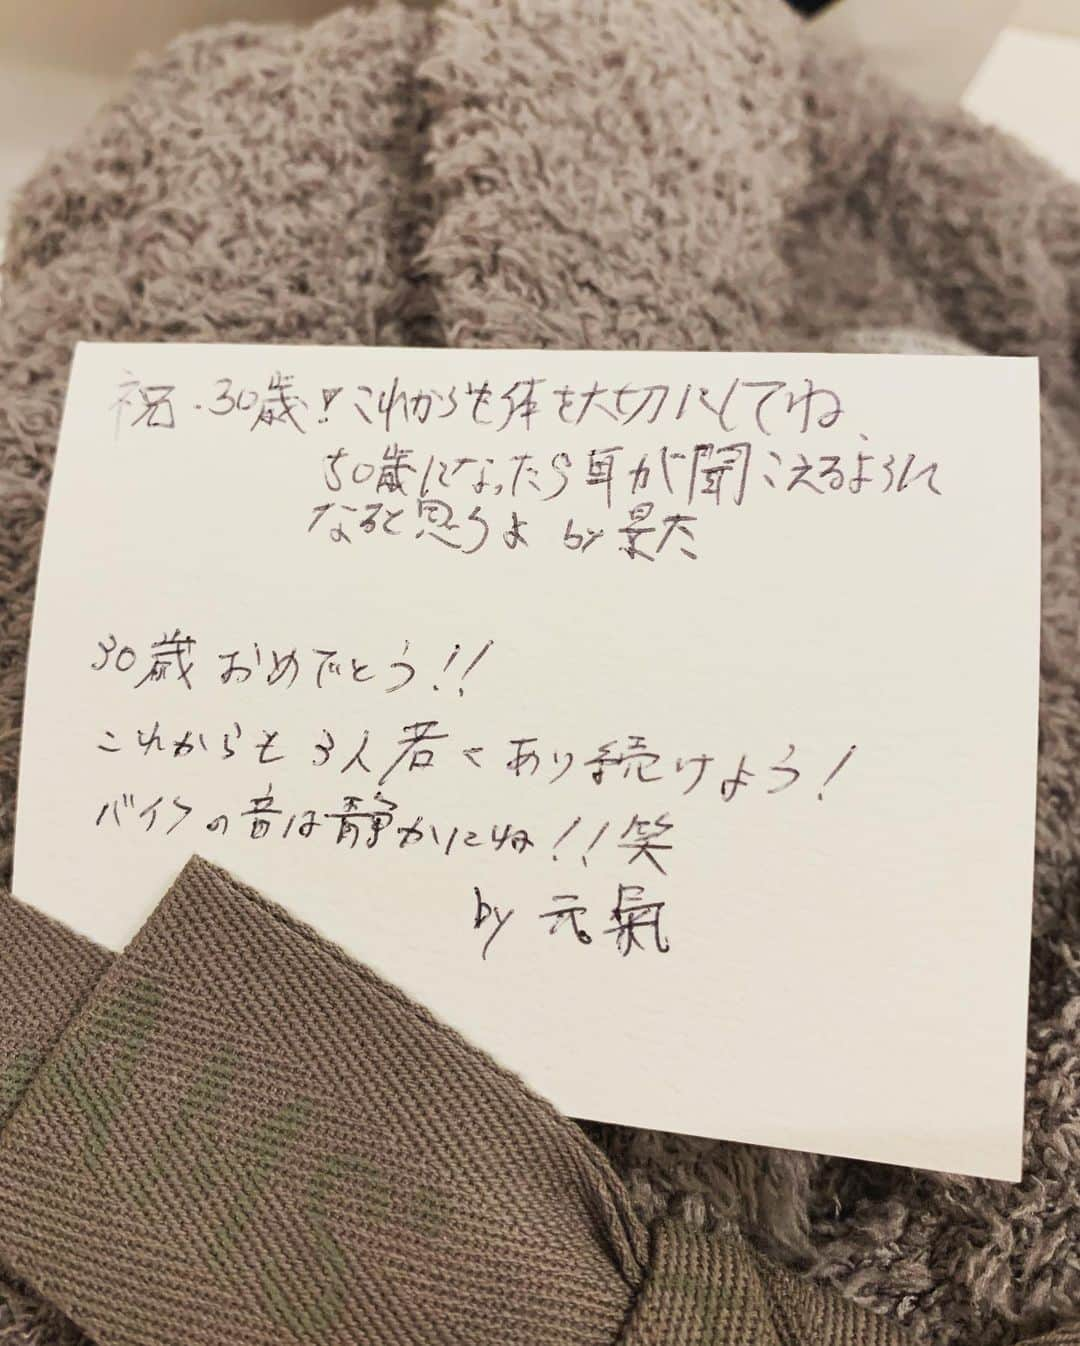 祝・30歳!これからも体を大切にしてね、
50歳になったら耳が聞こえるように
なると思うよ by 景太
30歳おめでとう!!
これからも3人若くあり続けよう!
バイクの音は静かにね!!笑
by 元氣